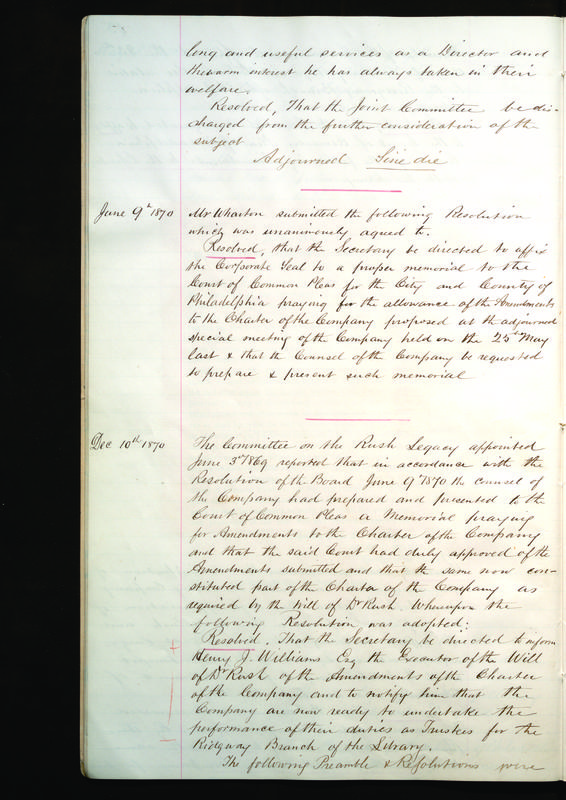 long and useful services as a Director and
the warm interest he has always taken in their
welfare.
Resolved, That the Joint Committee be dis-
charged from the further consideration of the
subject
Adjourned Sine die
June 9th 1870
Mr Wharton submitted the following Resolution
which was unanimously agreed to.
Resolved, that the Secretary be directed to affix
the Corporate Seal to a proper memorial to the
Court of Common Pleas for the City and County of
Philadelphia praying for the allowance of the Amendments
to the Charter of the Company proposed at the adjourned
special meeting of the Company held on the 25th May
last & that the Counsel of the Company be requested
to prepare & present such memorial
Dec 10th 1870
The Committee on the Rush Legacy appointed
June 3d 1869 reported that in accordance with the
Resolution of the Board June 9th 1870 the counsel of
the Company had prepared and presented to the
Court of Common Pleas a Memorial praying
for Amendments to the Charter of the Company
and that the said Court had duly approved of the
Amendments submitted and that the same now con-
stituted part of the Charter of the Company as
required by the Will of Dr Rush. Whereupon the
following Resolution was adopted:
Resolved, That the Secretary be directed to inform
Henry J. Williams Esq the Executor of the Will
of Dr Rush of the Amendments of the Charter
of the Company and to notify him that the
Company are now ready to undertake the
performance of their duties as Trustees for the
Ridgway Branch of the Library.
The following Preamble & Resolutions were